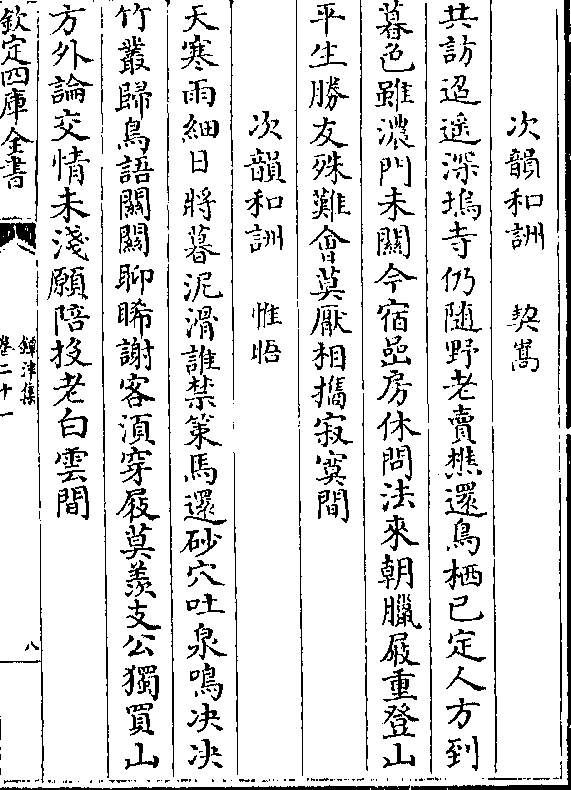 次韻和詶　契嵩
共訪迢遥深塢寺仍随野老賣樵還鳥栖已定人方到
暮色雖濃門未關今宿嵒房休問法來朝臘屐重登山
平生勝友殊難會莫厭相攜寂寞間
次韻和詶　惟晤
天寒雨細日將暮泥滑誰禁策馬還砂穴吐泉鳴决决
竹叢歸鳥語關關聊晞謝客湏穿屐莫羨支公獨買山
方外論交情未淺願陪投老白雲間
欽定四庫全書
鐔津集
卷二十一
八